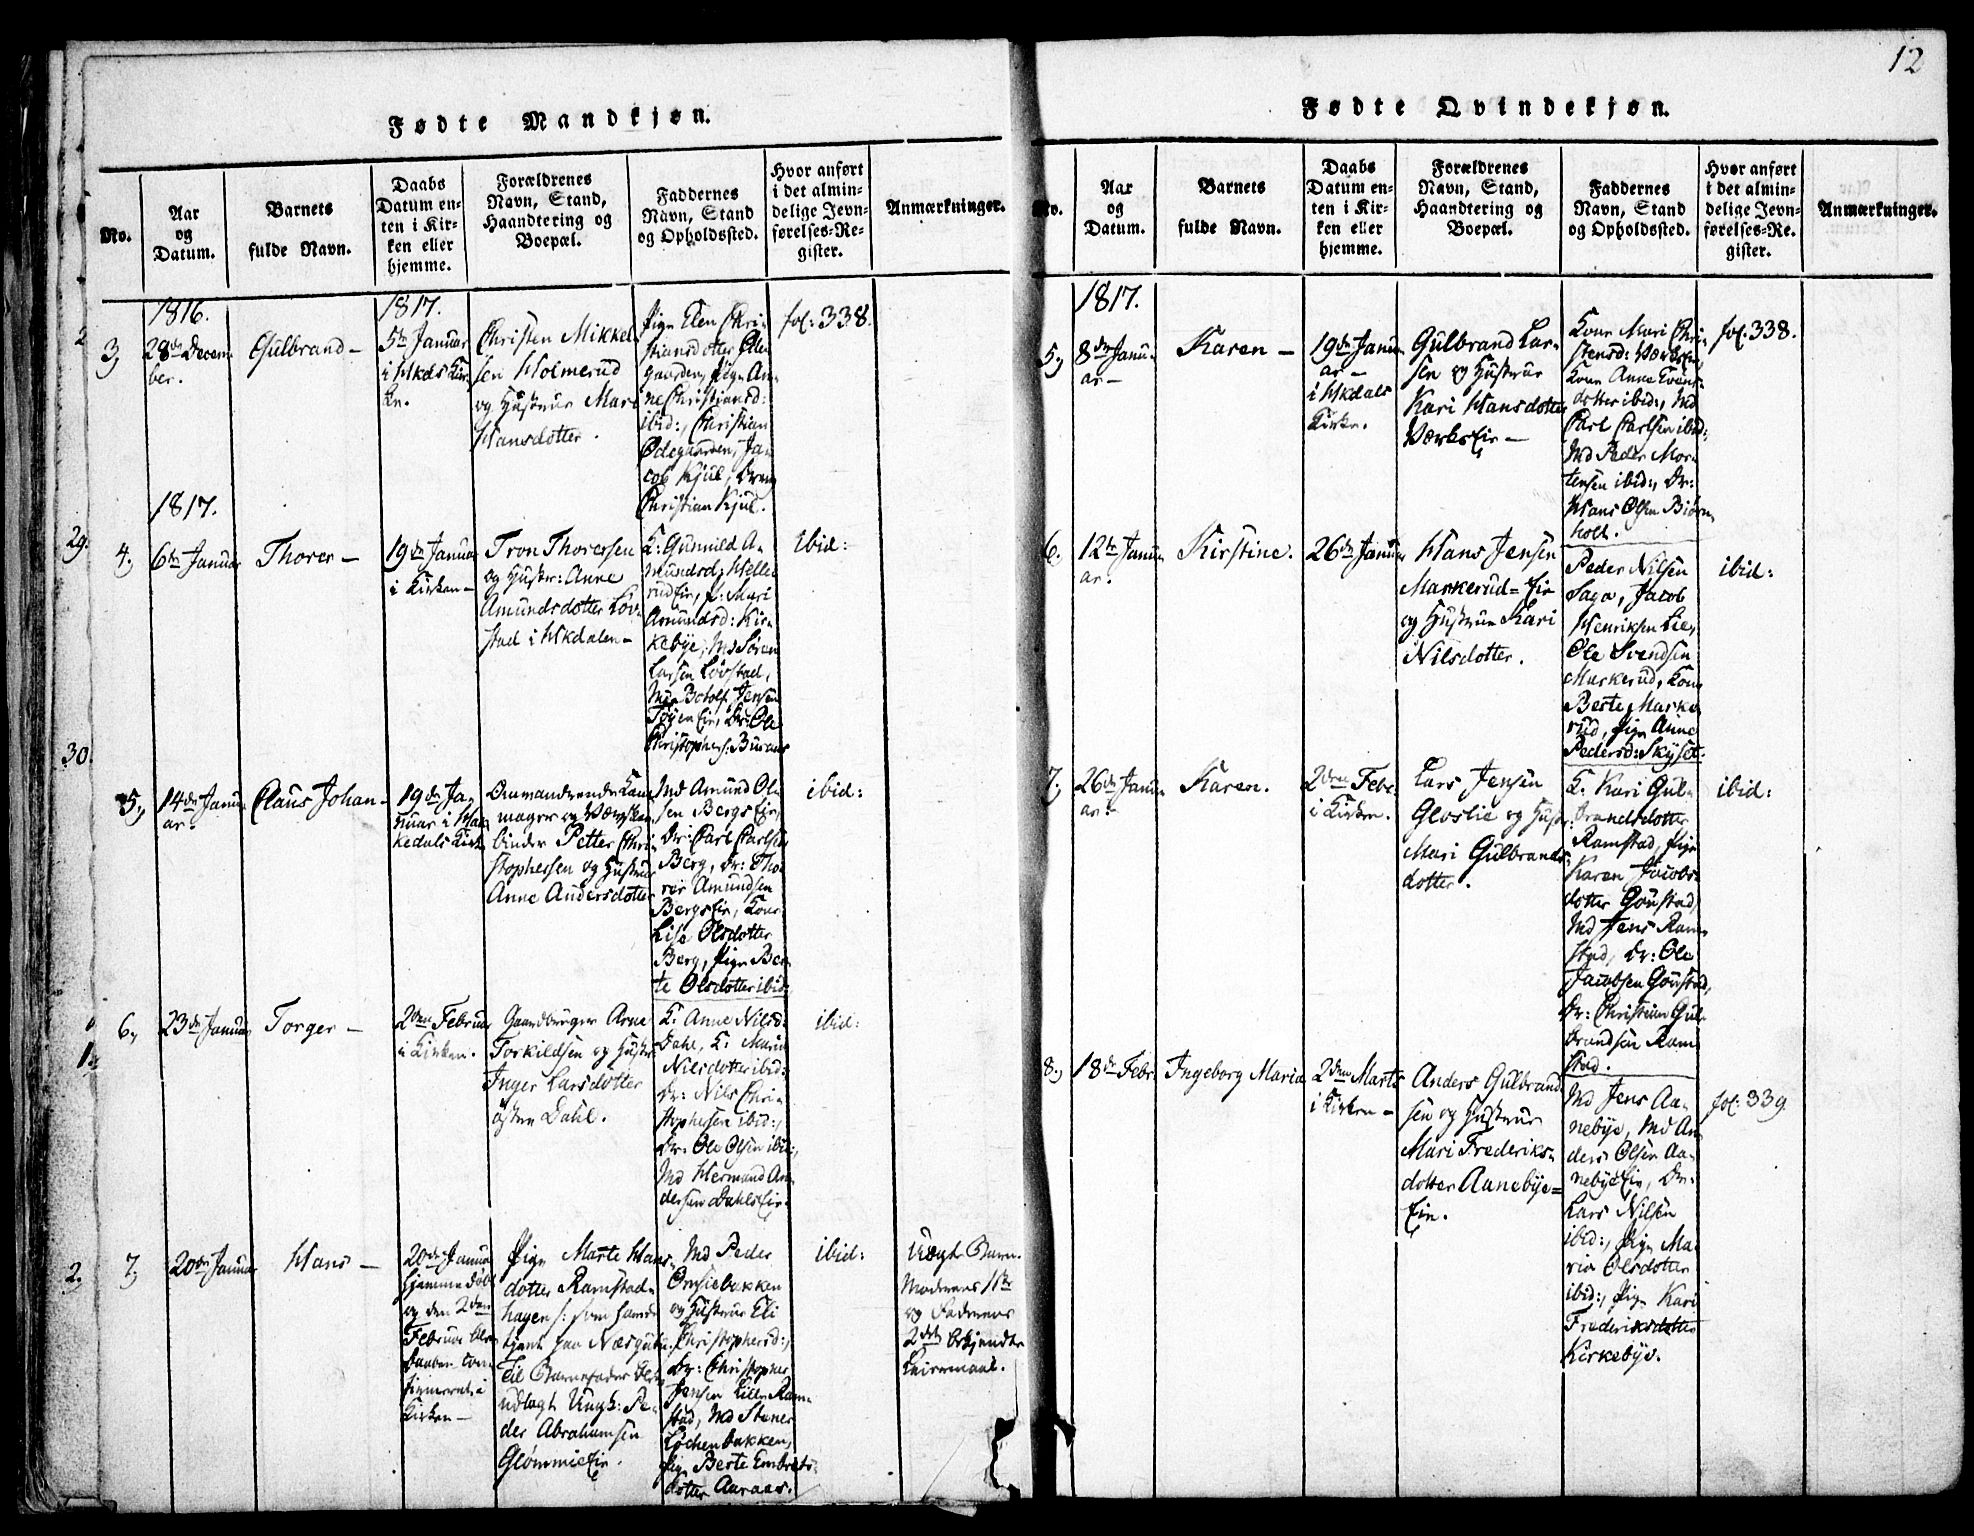 12
Fødte Mandkjøn.
No.
Aar
og
Datum.
Barnets
fulde Navn.
Daabs
Datum en-
ten i Kir-
ken eller
hjemme.
Forældrenes
Navn, Stand,
Haandtering og
Boepæl.
Faddernes
Navn, Stand
og Opholdssted.
Hvor anført
i det almin-
delige Jevn-
førelses-Re-
gister.
Anmærkninger.
3,
1816.
28de Decem-
ber.
Gulbrand –
1817.
5te Januar
i
Kir-
ke.
Christen Mikkel
sen Holmerud
og Hustrue Mari
Hansdotter.
Pige Elen Chri-
stiansdotter
Pige An-
ne Christiansd:
ibid:, Christian
Ødegaarden, Ja-
cob Kjul, Dreng
Christian Kjul.
fol: 338.
1817.
4,
6te Januar
Thorer –
19de Januar
i Kirken –
Tron Thorersen
og Hustr: Anne
Amundsdotter Løv-
stad i Hkdalen –
K: Gunnild A-
mundsd: Helle
rudEie, p: Mari
Amundsd: Kir-
kebye, Md Søren
Larsen Løvstad,
Botolf Jensen
Dr: Ole
Christophers: Buraas
Ibid:
5,
14de Janu-
ar.
Claus Johan –
19de Ja-
nuar i Hak
kedals Kirk
Omvandrende
mager og
binder Petter Chri-
stophersen og Hustrue
Anne Andersdotter
Md Amund Ol-
sen BergsEie,
Dr: Carl Carlsen
Berg, Dr: Tho-
rer Amundsen
BergsEie, Kone
Lise Olsdotter
Berg, Pige Ber-
te Olsdotter ibid:
ibid:
6,
23de Januar
Torger –
2den Februar
i Kirken.
Gaardbruger Arne
Torkildsen og Hustr:
Inger Larsdotter
østen Dahl.
K: Anne Nilsd:
Dahl, K: Maria
Nilsdotter ibid:
Dr: Nils Chri-
stophersen ibid:,
Dr: Ole Olsen ibid:,
Md Hermand An-
dersen DahlsEie.
ibid:
7,
20de Januar
Hans –
20de Januar
hjemmedøbt
og den 2den
Februar
Daaben con-
firmeret i
Kirken –
Pige Marte Hans-
dotter Ramstad-
hagen /: som
tjent paa
Til Barnefader
udlagt Ungk: Pe-
der Abrahamsen
GlømmiEie.
Md Peder
Onsiebakken
og Hustrue Eli
Christophersd:,
Dr: Christopher
Jensen Lille Ram-
stad, Md Stener
Løchenbakken,
Pige Berte Embrets-
dotter Aaraas.
ibid:
Uægte Barn.
Moderens 1ste
og Faderens
2det bekjendte
Leiermaal.
Fødte Qvindekjøn.
No.
Aar
og
Datum.
Barnets
fulde Navn.
Daabs
Datum en-
ten i Kir-
ken eller
hjemme.
Forældrenes
Navn, Stand,
Haandtering og
Boepæl.
Faddernes
Navn, Stand
og Opholdssted.
Hvor anført
i det almin-
delige Jevn-
førelses-Re-
gister.
Anmærkninger.
1817.
5,
8de Janu-
ar –
Karen –
19de Janu-
ar –
i Hkdals
Kirke.
Gulbrand Lar-
sen og Hustrue
Kari Hansdotter
VærksEie –
Kone Mari Chri-
stensd: VærksEie,
Kone Anne Evens-
dotter ibid:, Md
Carl Carlsen ibid:,
Md Peder Mor-
tensen ibid:, Dr:
Hans Olsen Biørn-
holt.
fol. 338.
6,
12te Janu-
ar.
Kirstine.
26de Januar
Hans Jensen
Markerud-Eie
og Hustrue Kari
Nilsdotter.
Peder Nilsen
Saga, Jacob
Henriksen Lie,
Ole Svendsen
Markerud, Kone
Berte Marke-
rud, Pige Anne
Pedersd: Skyset.
ibid:
7,
26de Janu-
ar.
Karen.
2den Febr.
i Kirken.
Lars Jensen
Gloslie og Hustr:
Mari Gulbrands-
dotter.
K. Kari Gul-
brandsdotter
Ramstad, Pige
Karen Jacobs-
dotter Gonstad,
Md Jens Ram-
stad, Dr: Ole
Jacobsen Gonstad,
Dr: Christian Gul-
brandsen Ram-
stad.
ibid:
8,
18de Febr.
Ingeborg Maria
2den Marts
i Kirken –
Anders Gulbrand-
sen og Hustrue
Mari Frederiks-
dotter Aanebye-
Eie.
Md Jens Aa-
nebye, Md An-
ders Olsen Aa-
nebyeEie, Dr:
Lars Nilsen
ibid:, Pige Ma-
rie Olsdotter
ibid:, Pige Kari
Frederiksdotter
Kirkebye.
fol: 339.